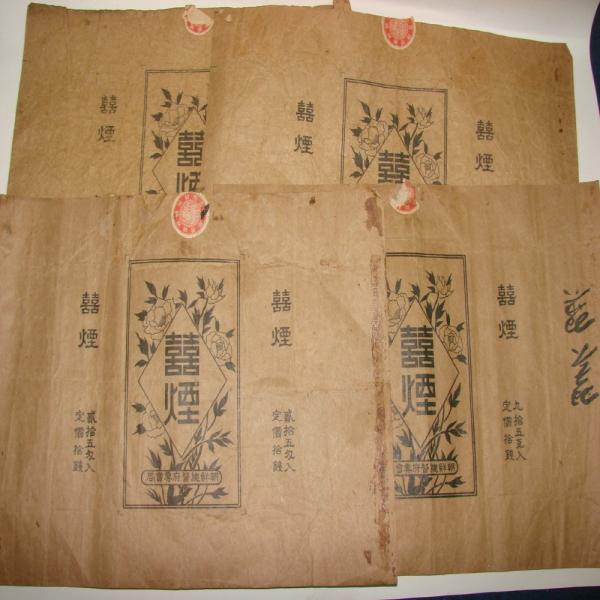 囍煙
囍煙
囍煙
囍
囍煙
囍煙
貳拾五匁入
定價拾錢
囍煙
朝鮮總督府專賣局
囍煙
貳拾五匁入
定價拾錢
囍煙
九拾五瓦入
定價拾錢
囍煙
朝鮮總督府專賣